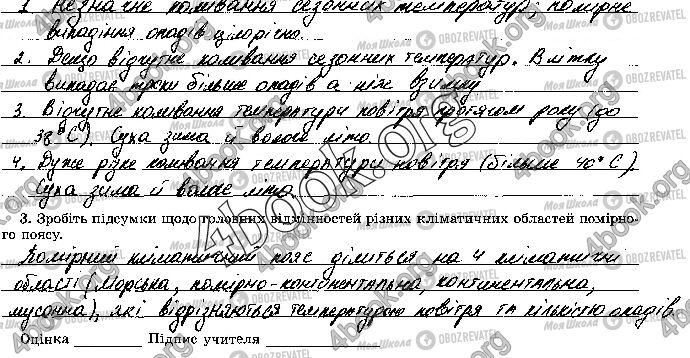 1. Незначне коливання сезонних температур; помірне
випадіння опадів цілорічно.
2. Дещо відчутне коливання сезонних температур. Влітку
випадає трохи більше опадів а ніж взимку
3. Відчутне коливання температури повітря протягом року (до
38°С). Суха зима й вологе літо.
4. Дуже різке коливання температури повітря (більше 40°С).
Суха зима й вологе літо.
3. Зробіть підсумки щодо головних відмінностей різних кліматичних областей помірно-
го поясу.
Помірний кліматичний пояс ділиться на 4 кліматичні
області (Морська, помірно-континентальна, континентальна,
мусонна), які відрізняються температурою повітря та кількістю опадів.
Оцінка ________ Підпис учителя ____________